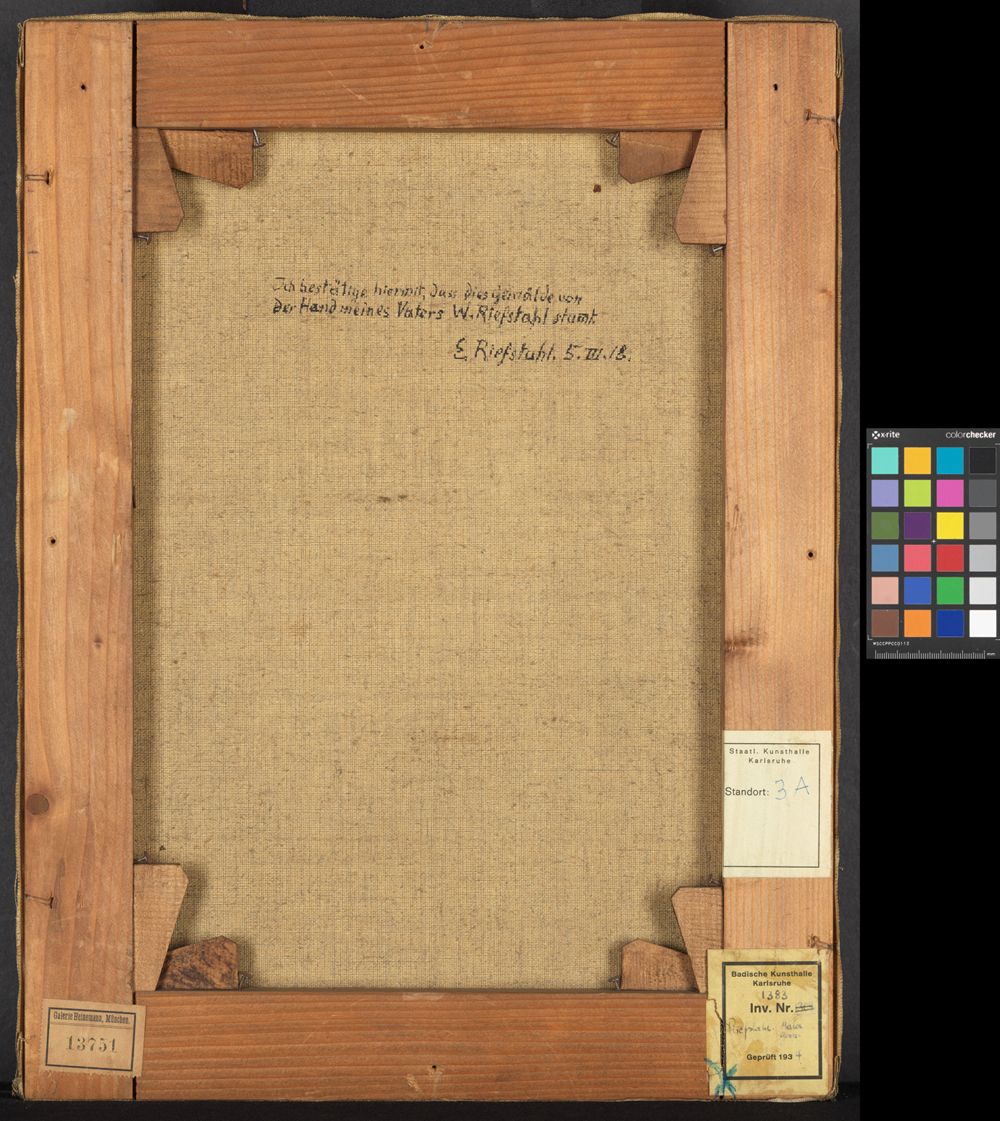 Ich bestätige hiermit, dass dies gemälde von
der Hand meines Vaters W. Riefstahl stamt.
E. Riefstahl. 5. III. 18.
x-rite colorchecker
MSCCPPCC0113
Staatl. Kunsthalle
Karlsruhe
Standort: 3 A
Badische Kunsthalle
Karlsruhe
1383
Inv. Nr.
Geprüft 193 4
Galerie Heinemann, München.
13751